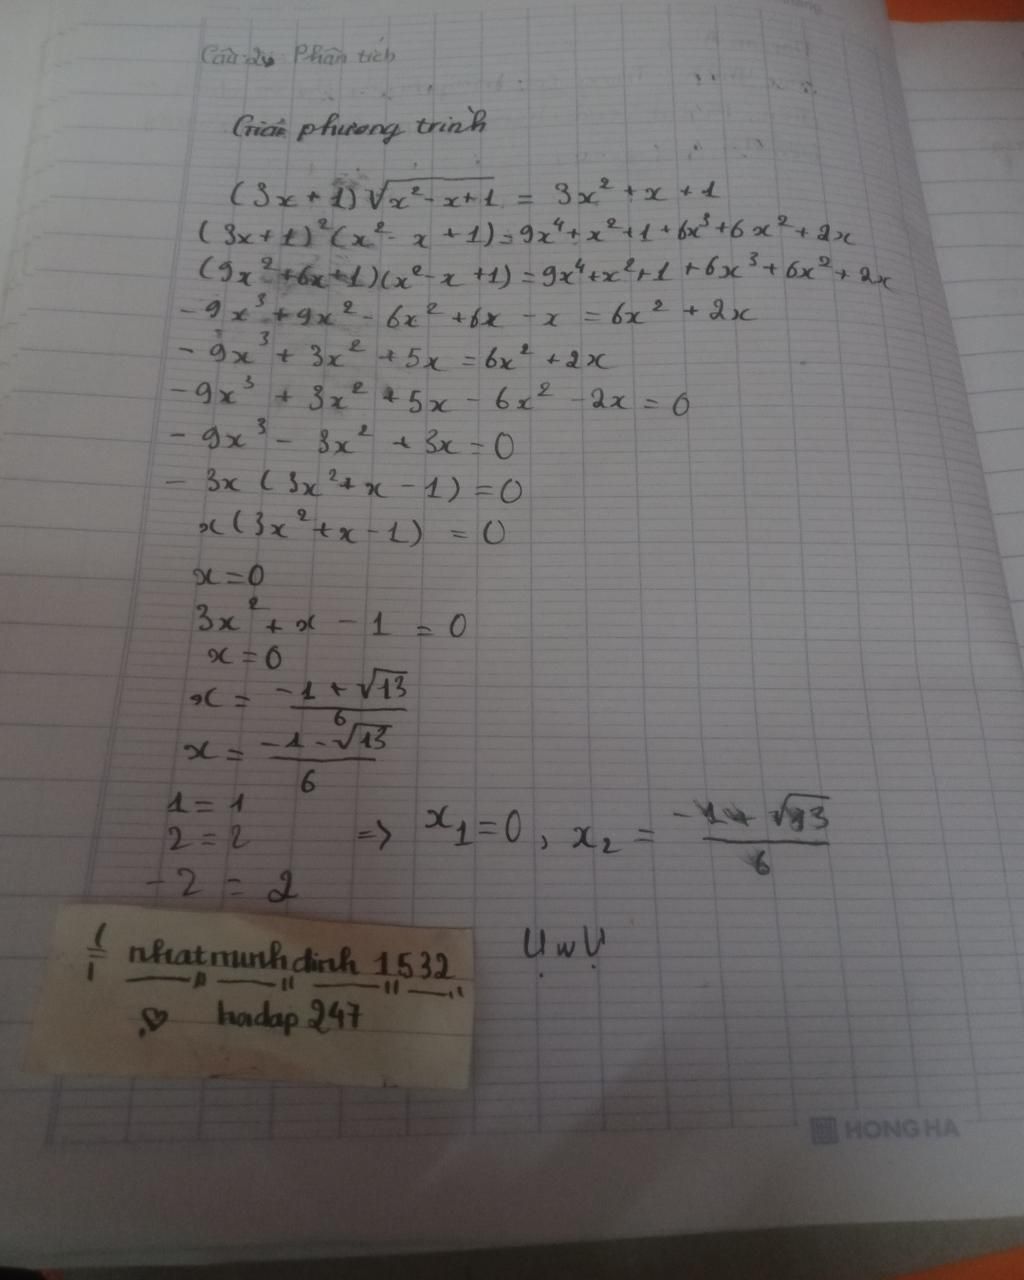 Câu 2: Phân tích
Giải phương trình
(3x + 1) √(x² - x + 1) = 3x² + x + 1
(3x + 1)² (x² - x + 1) = 9x⁴ + x² + 1 + 6x³ + 6x² + 2x
(9x² + 6x + 1)(x² - x + 1) = 9x⁴ + x² + 1 + 6x³ + 6x² + 2x
- 9x³ + 9x² - 6x² + 6x - x = 6x² + 2x
- 9x³ + 3x² + 5x = 6x² + 2x
- 9x³ + 3x² + 5x - 6x² - 2x = 0
- 9x³ - 3x² + 3x = 0
- 3x (3x² + x - 1) = 0
x (3x² + x - 1) = 0
x = 0
3x² + x - 1 = 0
x = 0
x = (-1 + √13)/6
x = (-1 - √13)/6
1 = 1
2 = 2 => x₁ = 0, x₂ = (-1 + √13)/6
- 2 = 2
nhatminhdinh 1532
hadap 247
UwU
HONG HA